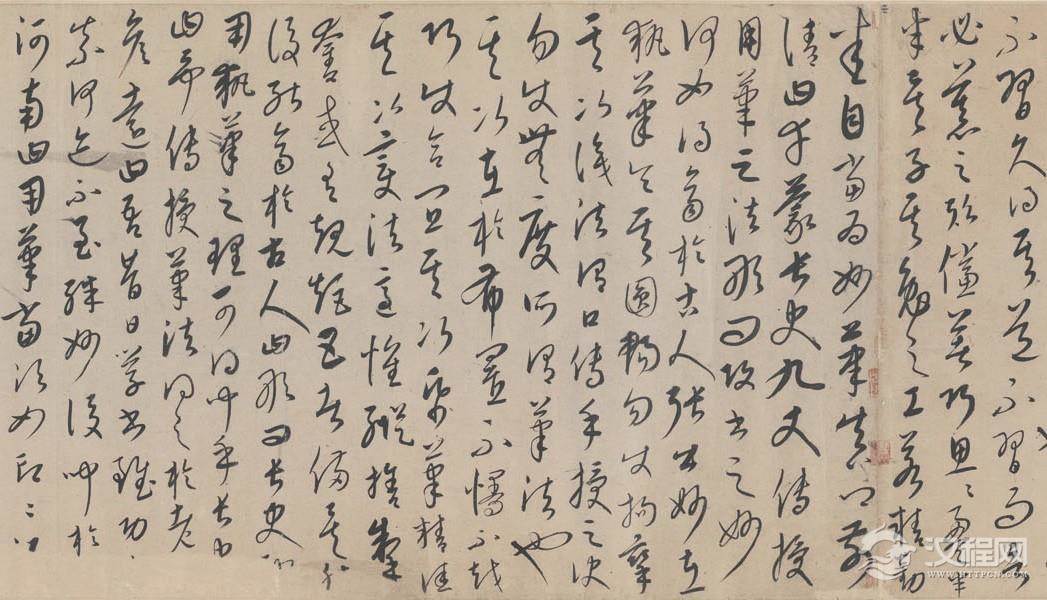 不習久得其道不習而言
必慕之歟儻著巧思〻盈半
矣子其勉之工若精勤
悉自當為妙筆真卿前
請曰幸蒙長史九丈傳授
用筆之法敢問攻書之妙
何如得齊於古人張公曰妙在
執筆令其圓暢勿使拘攣
其次識法謂口傳手授之訣
勿使無度所謂筆法也
其次在於布置不慢不越
巧使合宜其次紙筆精佳
其次變法適懷縱捨掣
奪咸有規矩五者備矣然
後能齊於古人曰敢問長史神
用執筆之理可得聞乎長史
曰予傳授筆法得之於老
彥遠曰吾昔日學書雖功
奈何迹不至殊妙後聞於
河南曰用筆當須如印〻
汉程网
WWW.HTTPCN.COM